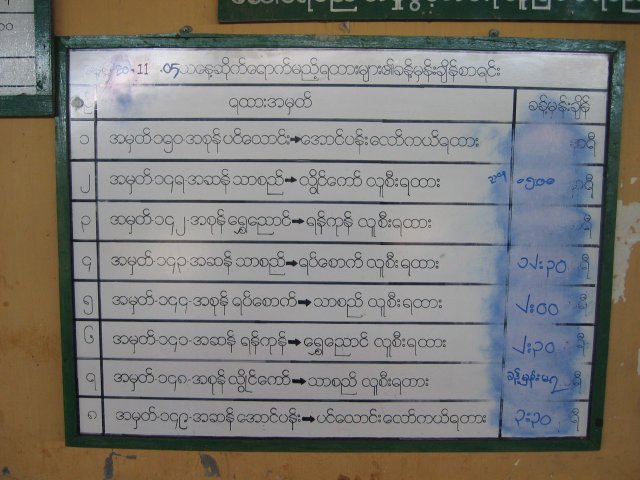 11 .05 သနေ့ဆိုက်ရောက်မည့်ရထားများ၏ခန့်မှန်းချိန်စာရင်း
စဉ် ရထားအမှတ် ခန့်မှန်းချိန်
၁ အမှတ်-၁၅၀-အစုန် ပင်လောင်း➡အောင်ပန်းလော်ကယ်ရထား နာရီ
၂ အမှတ်-၁၄၇-အဆန် သာစည်➡လွိုင်ကော် လူစီးရထား ၀၅၀၀ နာရီ
၃ အမှတ်-၁၄၂-အစုန် ရွှေညောင်➡ရန်ကုန် လူစီးရထား
၄ အမှတ်-၁၄၃-အဆန် သာစည်➡ရပ်စောက် လူစီးရထား ၁၂:၃၀
၅ အမှတ်-၁၄၄-အစုန် ရပ်စောက်➡သာစည် လူစီးရထား ၂:၀၀
၆ အမှတ်-၁၄၁-အဆန် ရန်ကုန်➡ရွှေညောင် လူစီးရထား ၂:၃၀
၇ အမှတ်-၁၄၈-အစုန် လွိုင်ကော်➡သာစည် လူစီးရထား ခန့်မှန်းမရ
၈ အမှတ်-၁၄၉-အဆန် အောင်ပန်း➡ပင်လောင်းလော်ကယ်ရထား ၃:၃၀